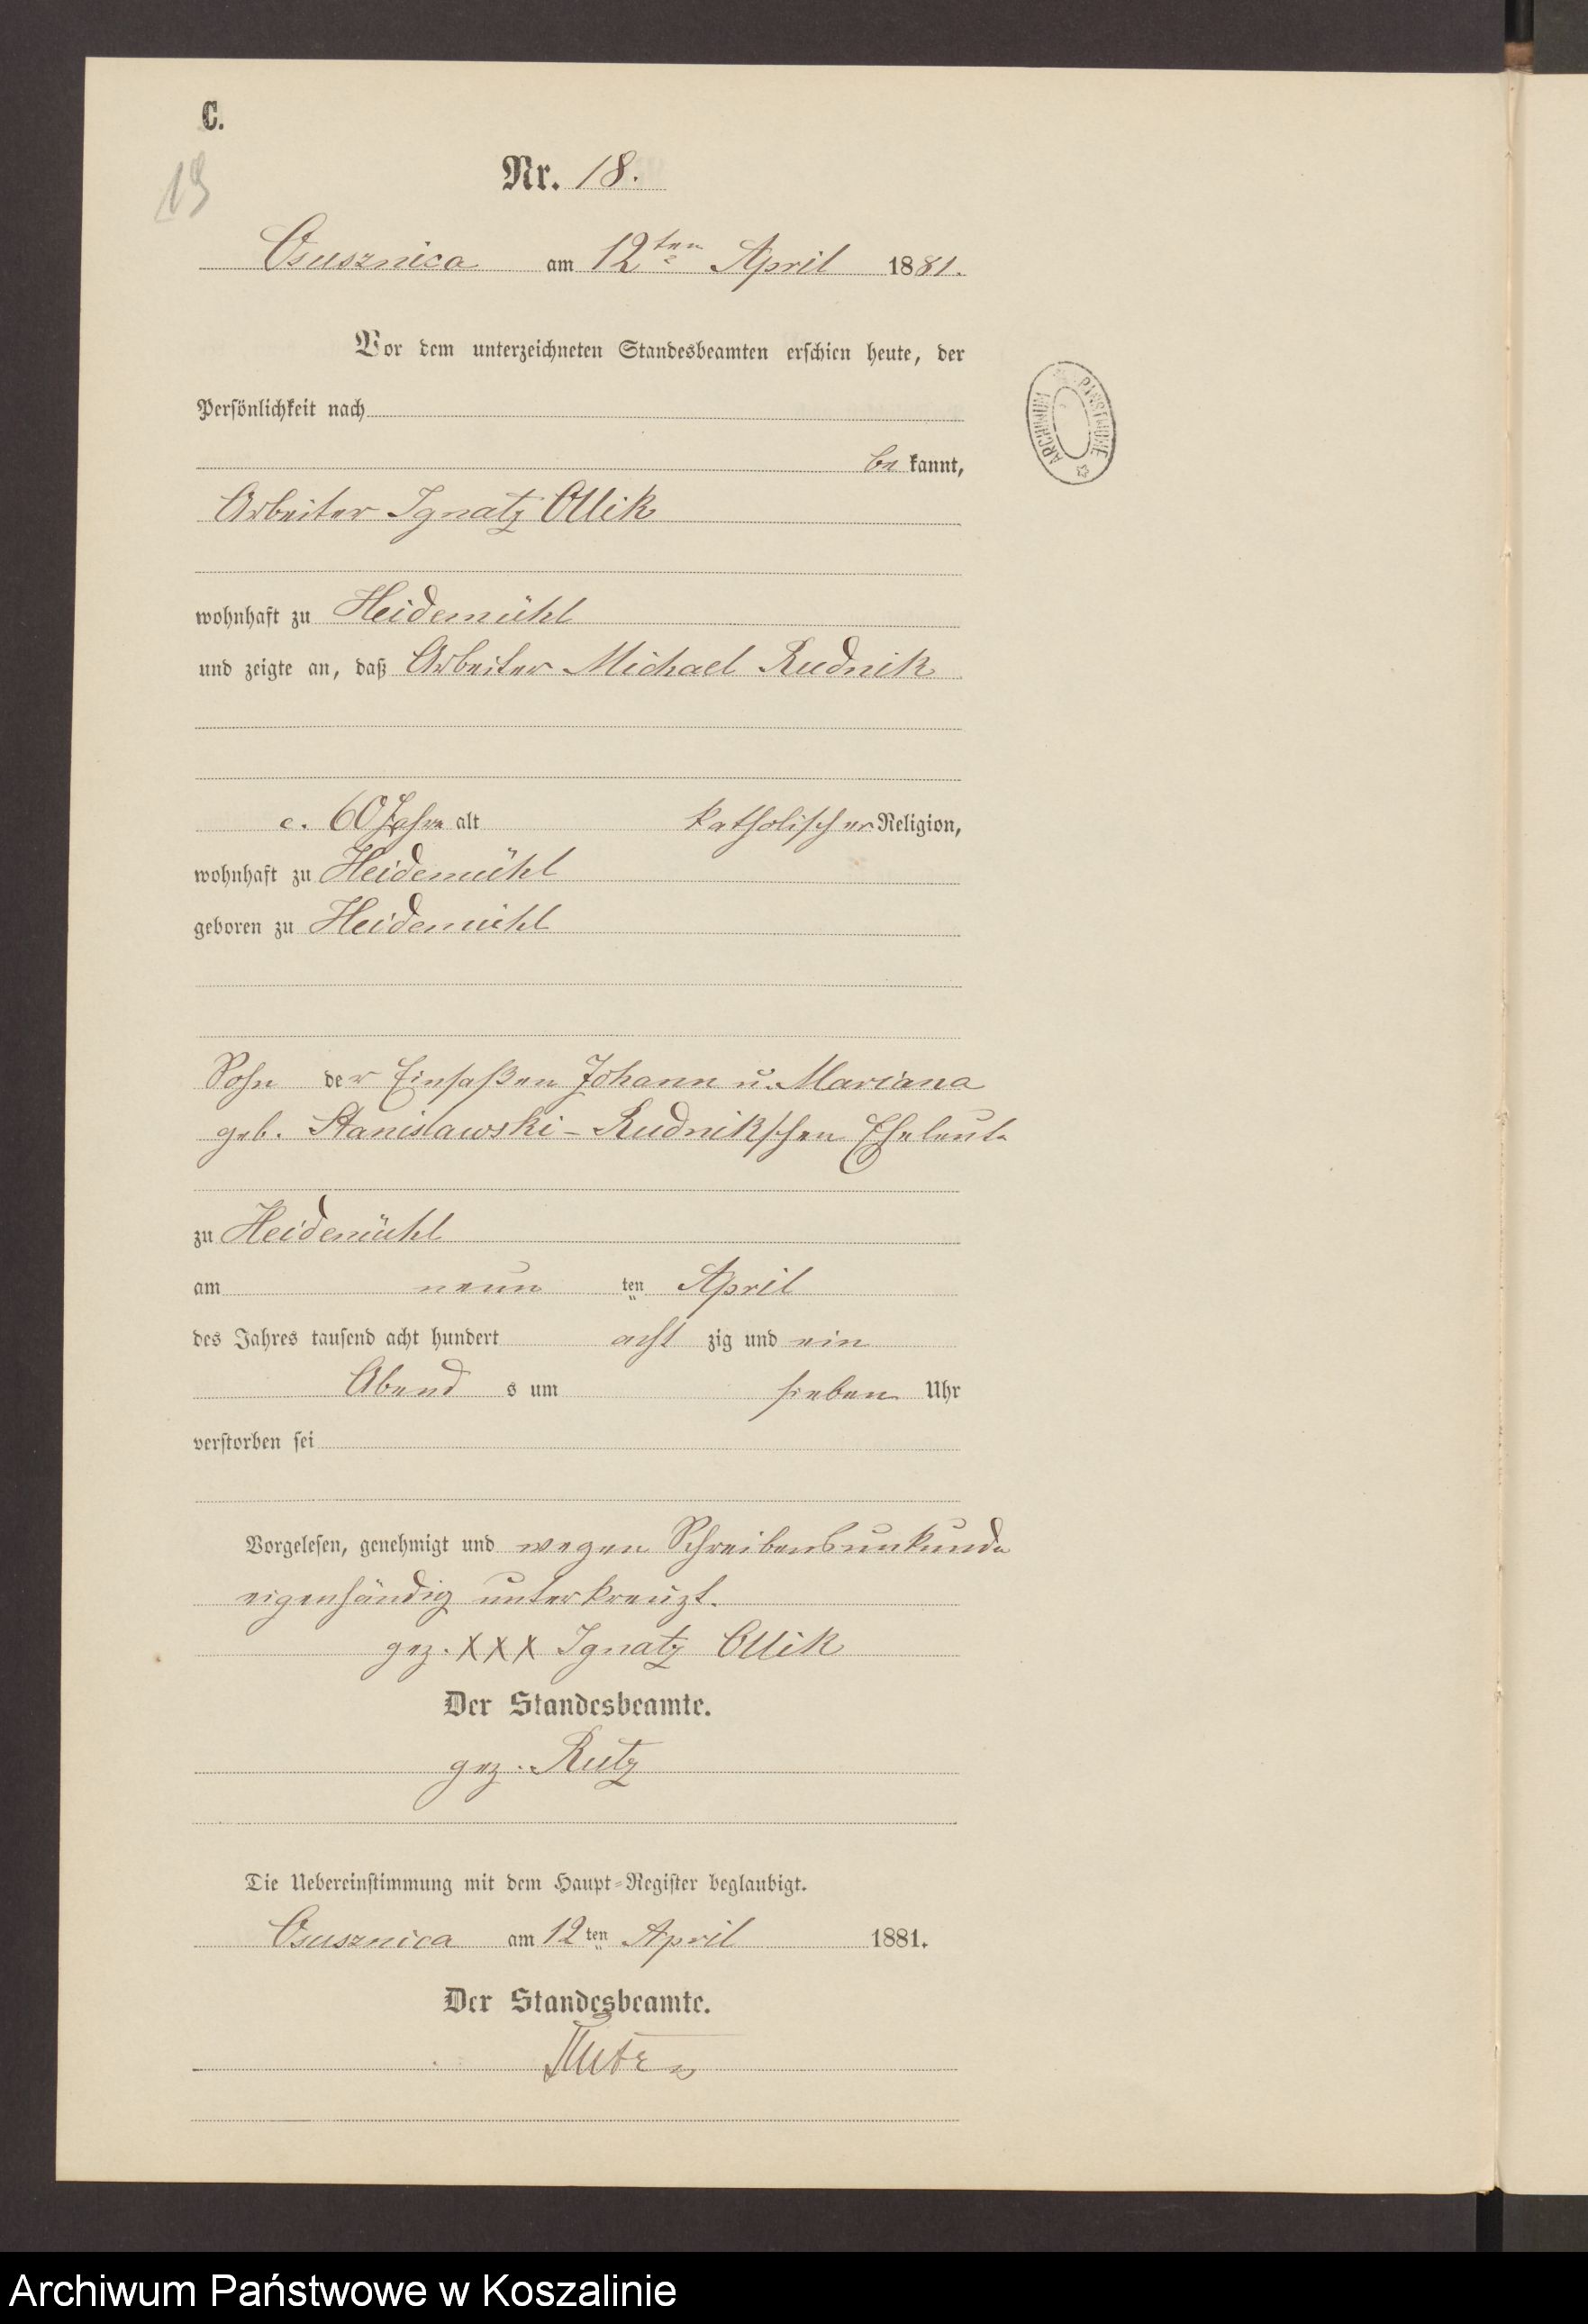 C.
19
Nr. 18.
Osusznica am 12ten April 1881.
Vor dem unterzeichneten Standesbeamten erschien heute, der
Persönlichkeit nach
be kannt,
Arbeiter Ignatz Ollik
wohnhaft zu Heidemühl
und zeigte an, daß Arbeiter Michael Rudnik
c. 60 Jahre alt katholischer Religion,
wohnhaft zu Heidemühl
geboren zu Heidemühl
Sohn der Einsaßen Johann u. Mariana
geb. Stanislawski - Rudnikschen Eheleute
zu Heidemühl
am neun ten April
des Jahres tausend acht hundert acht zig und ein
Abend s um sieben Uhr
verstorben sei
Vorgelesen, genehmigt und wegen Schreibensunkunde
eigenhändig unterkreuzt.
gez. XXX Ignatz Ollik
Der Standesbeamte.
gez. Rutz
Die Uebereinstimmung mit dem Haupt-Register beglaubigt.
Osusznica am 12ten April 1881.
Der Standesbeamte.
Rutz
ARCHIWUM PAŃSTWOWE
Archiwum Państwowe w Koszalinie